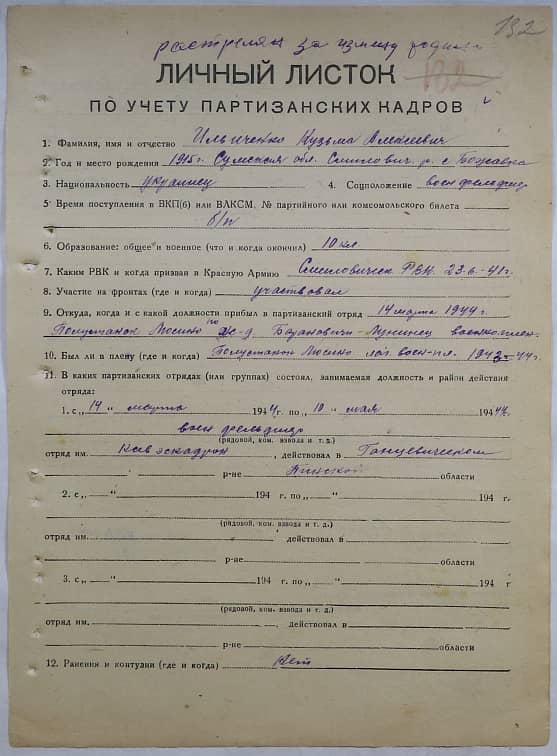 132
расстрелян за измену родине
ЛИЧНЫЙ ЛИСТОК 132
ПО УЧЕТУ ПАРТИЗАНСКИХ КАДРОВ
1. Фамилия, имя и отчество Ильиченко Кузьма
2. Год и место рождения 1915 г. Сумская обл. р. с.
3. Национальность украинец 4. Соцположение воен фельдшер
5. Время поступления в ВКП(б) или ВЛКСМ, № партийного или комсомольского билета
б/п
6. Образование: общее и военное (что и когда окончил) 10 кл.
7. Каким РВК и когда призван в Красную Армию РВК 23-6-41 г.
8. Участие на фронтах (где и когда) участвовал
9. Откуда, когда и с какой должности прибыл в партизанский отряд 14 марта 1944 г.
Полустанок Люсино по ж-д Лунинец военноплен.
10. Был ли в плену (где и когда) Полустанок Люсино лаг. воен-пл. 1943-44 г.
11. В каких партизанских отрядах (или группах) состоял, занимаемая должность и район действия
отряда:
1. с „14" марта 1944 г. по „10" мая 1944 г.
воен фельдшер
(рядовой, ком. взвода и т. д.)
отряд им. Кавэскадрон, действовал в Ганцевическом
р-не Пинской области
2. с „ " 194 г. по „ " 194 г.
(рядовой, ком. взвода и т. д.)
отряд им. действовал в
р-не области
3. с „ " 194 г. по „ " 194 г.
(рядовой, ком. взвода и т. д.)
отряд им. , действовал в
р-не области
12. Ранения и контузии (где и когда) Нет